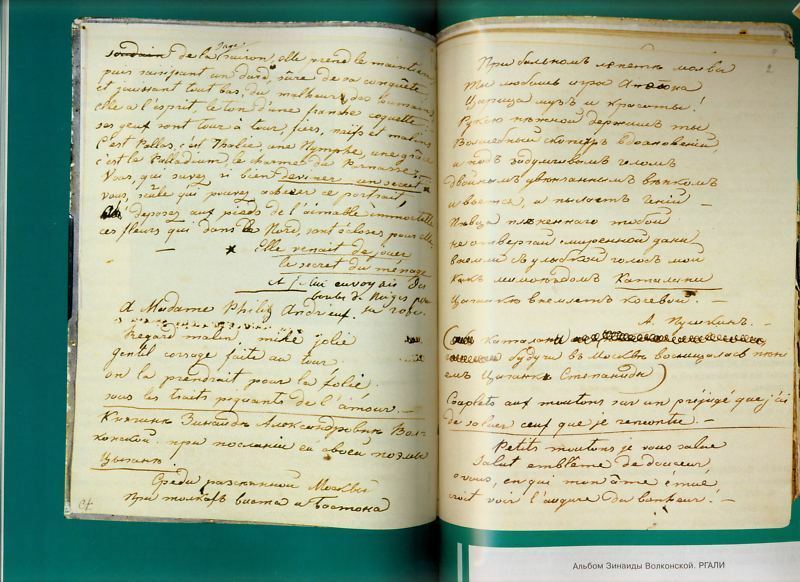 soudain de la Saison, elle prend le maintien
puis rampant un dard, sûre de sa conquête;
et jouissant tout bas, du malheur des humains
elle a l'esprit, le ton d'une franche coquette;
ses yeux sont tour à tour, fiers, naïfs et malins,
C'est Pallas, c'est Thalie, une Nymphe, une grâce
c'est le Palladium, le charme du Parnasse.
Vous, qui savez si bien deviner un secret
vous, seule qui pouvez achever ce portrait,
déposez aux pieds de l'aimable immortelle
ces fleurs qui dans le Nord, sont écloses pour elle
Elle venait de jouer
le secret du ménage
et j'ai envoyais des
boules de Neiges pour
sa robe.
A Madame Philis Andrieux
Regard malin, mine jolie
gentil corsage faite au tour.
on la prendrait pour la folie
sous les traits piquants de l'amour. —
Княгинѣ Зинаидѣ Александровнѣ Вол-
конской. при посланіи ей своей поэмы
Цыгане.
Среди разсѣянной Москвы
При толкахъ виста и бостона
2
При бальномъ лепетѣ молвы
Ты любишь игры Аполлона
Царица музъ и красоты!
Рукою нѣжной держишь ты
Волшебный скипетръ вдохновеній,
и надъ задумчивымъ челомъ
двойнымъ увѣнчаннымъ вѣнкомъ
и вьется, и пылаетъ геній —
Пѣвца плѣненнаго тобой
не отвергай смиренной дани
внемли съ улыбкой голосъ мой
Какъ мимоѣздомъ Каталани
Цыганкѣ внемлетъ кочевой. —
А. Пушкинъ. —
каталани
будучи въ Москвѣ восхищалась пѣні-
емъ Цыганки Степаниды)
Couplets aux moutons sur un préjugé que j'ai
de saluer ceux que je rencontre. —
Petits moutons je vous salue
Salut emblême de douceur,
o vous, en qui mon âme émue
croit voir l'augure du bonheur! —
Альбом Зинаиды Волконской. РГАЛИ